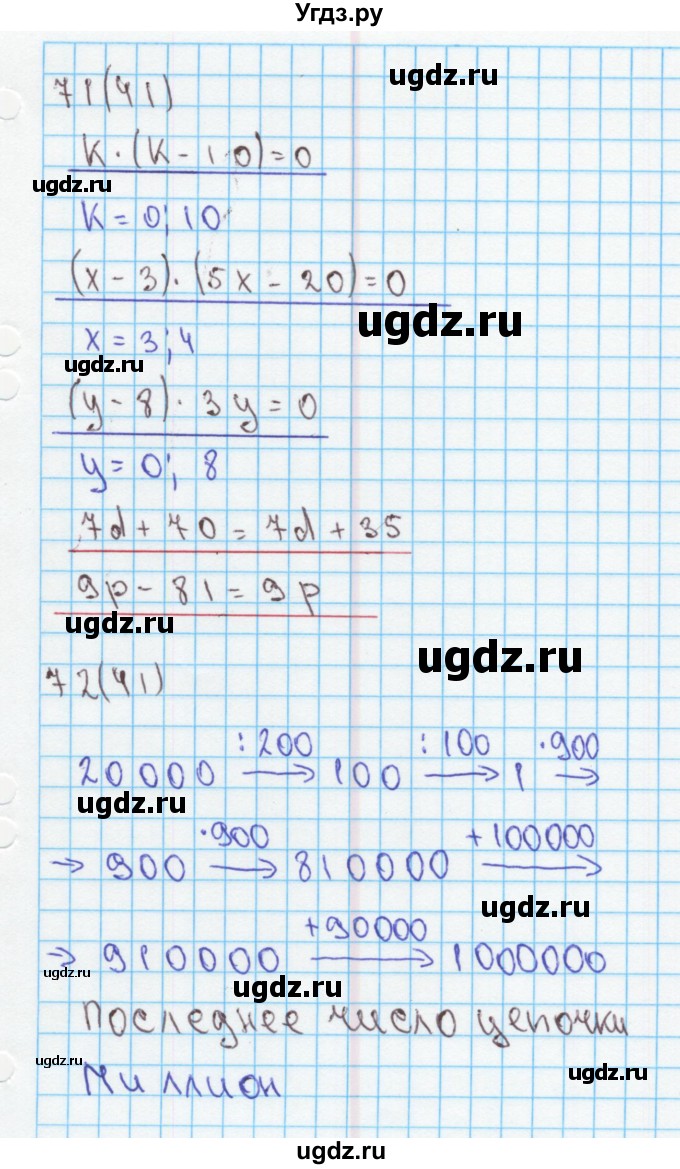 Угдз.ру
ugdz.ru
71(41)
k·(k-10)=0
ugdz.ru
k=0;10
(x-3)·(5x-20)=0
ugdz.ru
x=3;4
ugdz.ru
(y-8)·3y=0
y=0; 8
7d+70=7d+35
9p-81=9p
ugdz.ru
ugdz.ru
72(41)
:200 :100 ·900
20000 → 100 → 1 →
ugdz.ru
·900 +100000
→ 900 → 810000 →
ugdz.ru
+90000
→ 910000 → 1000000
ugdz.ru
ugdz.ru
Последнее число цепочки
ugdz.ru
Миллион
ugdz.ru
ugdz.ru